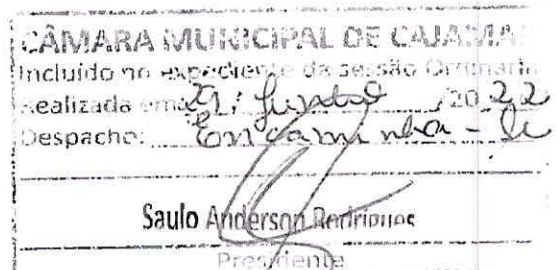 CÂMARA MUNICIPAL DE CAJAMAR
Incluído no expediente da sessão Ordinaria
Realizada em 29 / Junho /20 22
Despacho: Encaminha-se
Saulo Anderson Rodrigues
Presidente